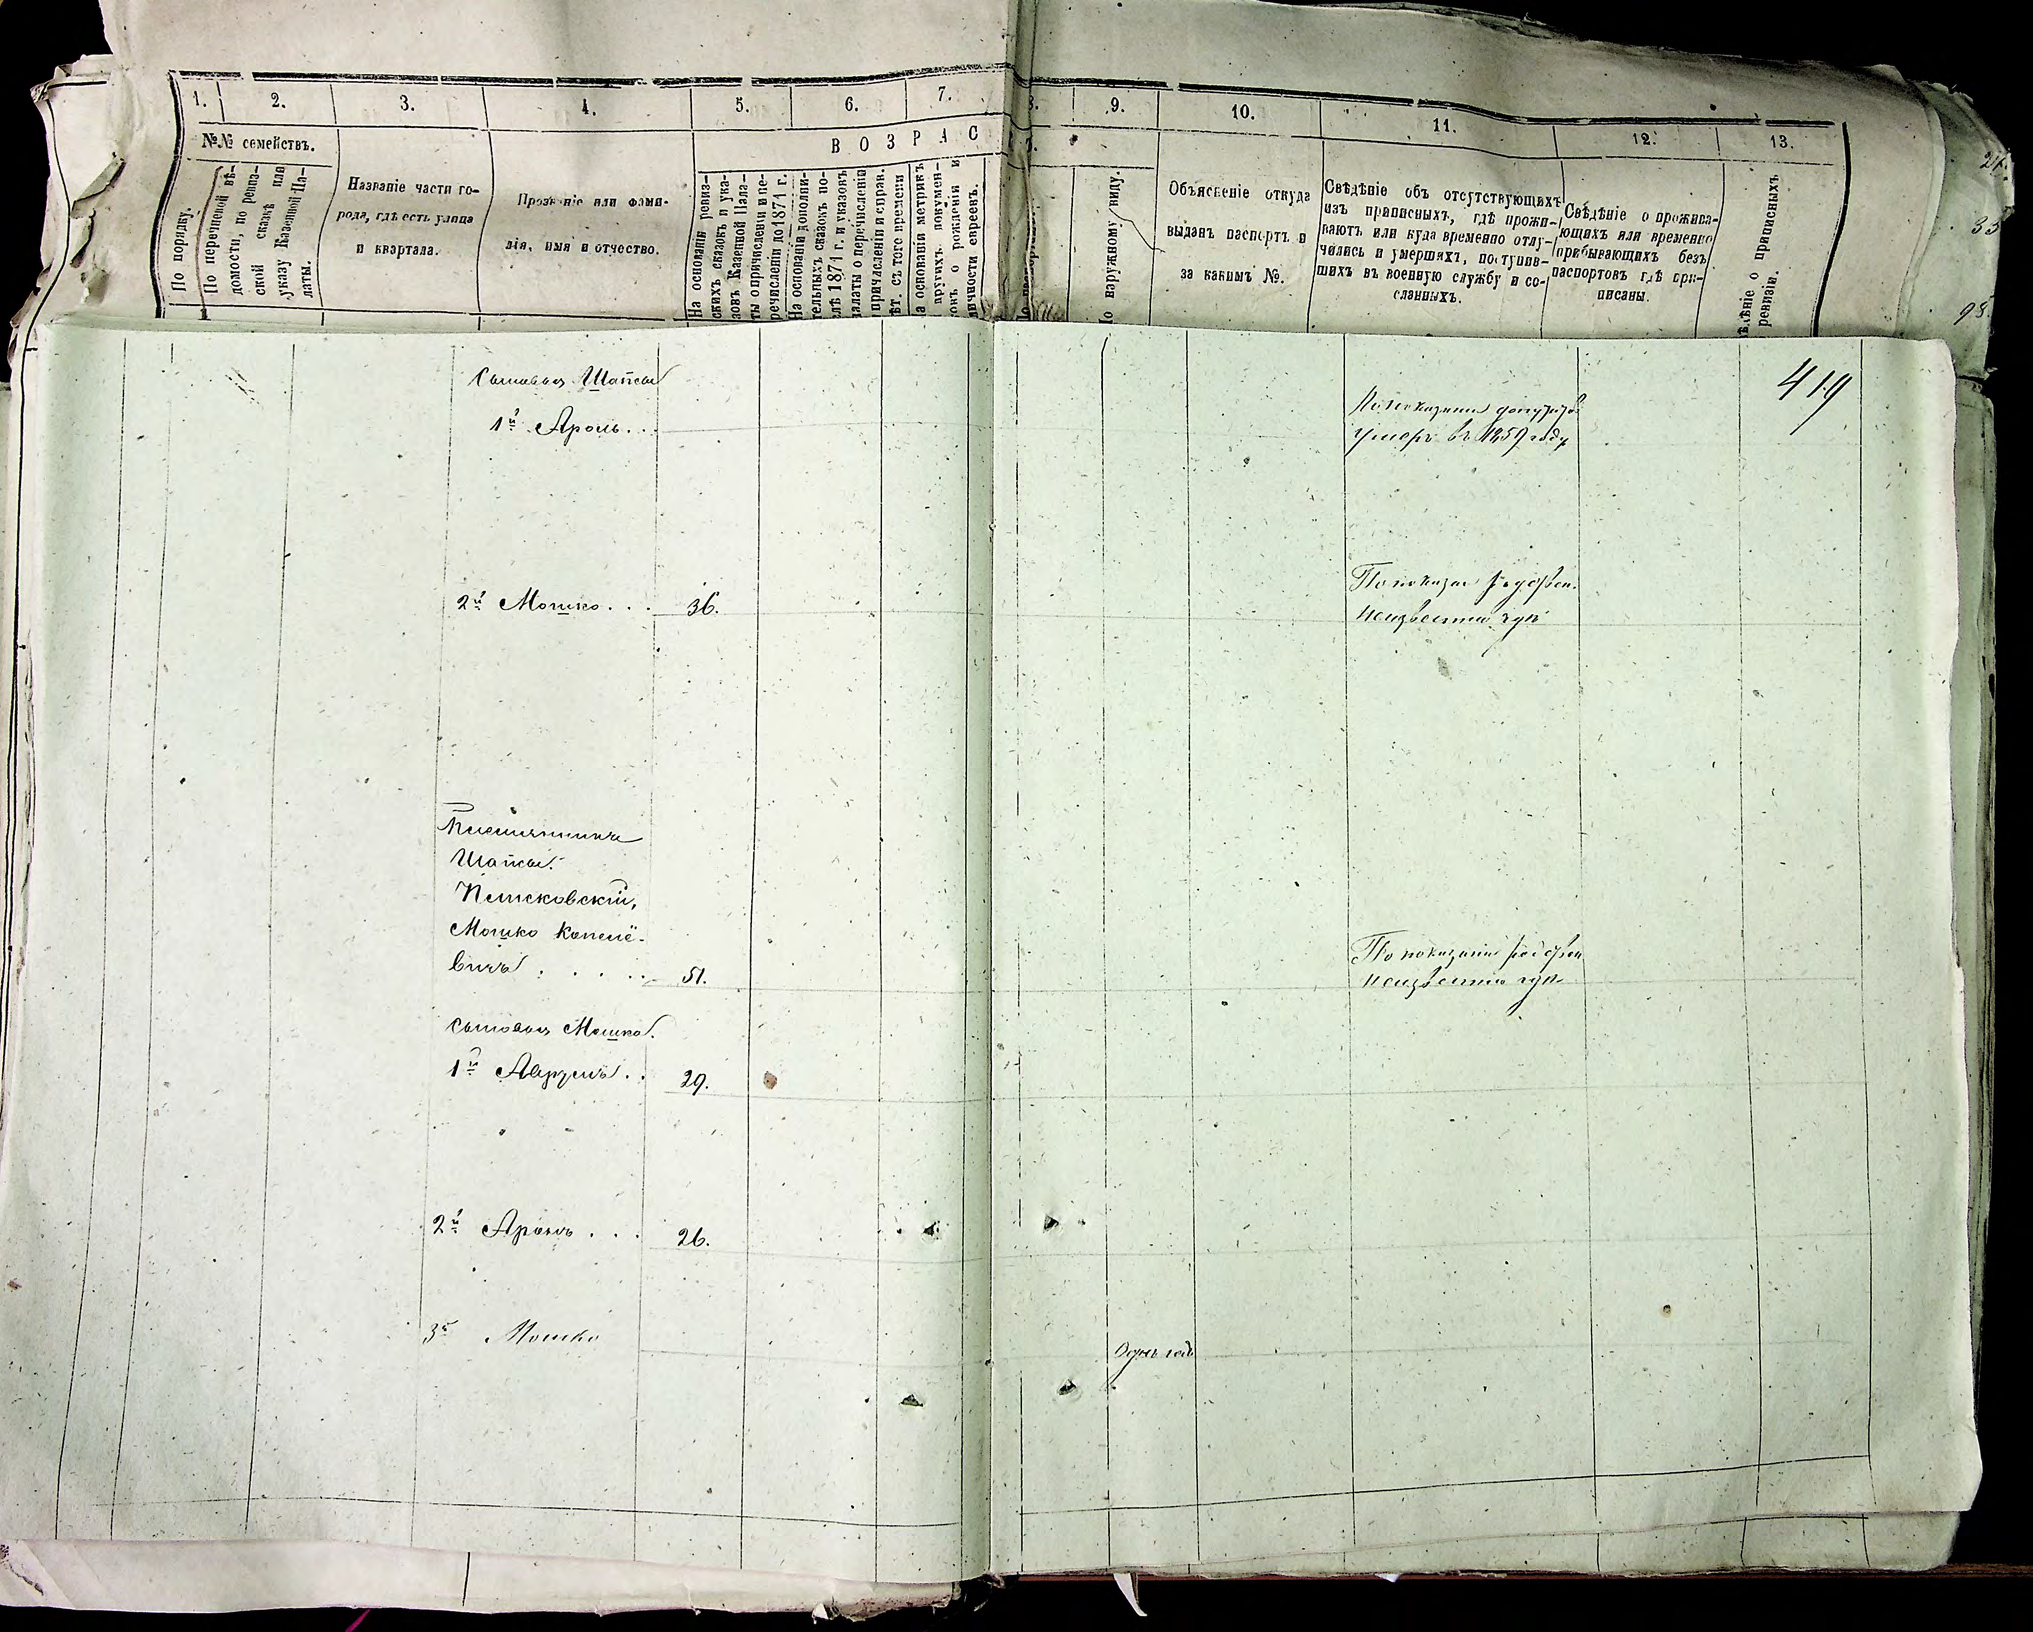 1. 2. 3. 4. 5. 6. 7. 8. 9. 10. 11. 12. 13.
№№ семействъ.
ВОЗРАС
По порядку.
По перечневой вѣ-
домости, по ревиз-
ской сказкѣ или
указу Казенной Па-
латы.
Названіе части го-
рода, гдѣ есть улица
и квартала.
Прозваніе или фами-
лія, имя и отчество.
На основаніи ревиз-
скихъ сказокъ и ука-
зовъ Казенной Пала-
ты о причисленіи и пе-
речисленіи до 1871 г.
На основаніи дополни-
тельныхъ сказокъ по-
слѣ 1871 г. и указовъ
палаты о перечисленіи
причисленіи и справ.
съ того времени
а основаніи метрикъ
другихъ докумен-
онъ о рожденіи и
личности евреенъ.
По наружному виду.
Объясненіе откуда
выданъ паспортъ и
за какимъ №.
Свѣдѣніе объ отсутствующихъ
изъ приписныхъ, гдѣ прожи-
ваютъ или куда временно отлу-
чились и умершихъ, поступив-
шихъ въ военную службу и со-
сланныхъ.
Свѣдѣніе о прожива-
ющихъ или временно
прибывающихъ безъ
паспортовъ гдѣ при-
писаны.
ѣдѣніе о приписныхъ
ревизіи.
33
98
419
Сыновья Шапсы
1й Аронъ...
умеръ въ 1859 году
2й Мошко... 36.
По показан
неизвестно гдѣ
Племянникъ
Шапсы
Пешсковскій,
Мошко Копелё-
вичъ..... 51.
По показанію
неизвестно гдѣ
Сыновья Мошка.
1й Аврумъ.. 29.
2й Аронъ... 26.
3й Мошко
Одинъ годъ